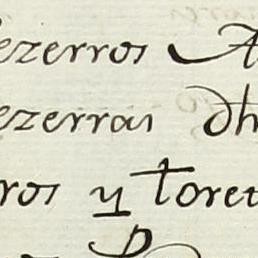 ezerros A
ezerras dh
ros y toret